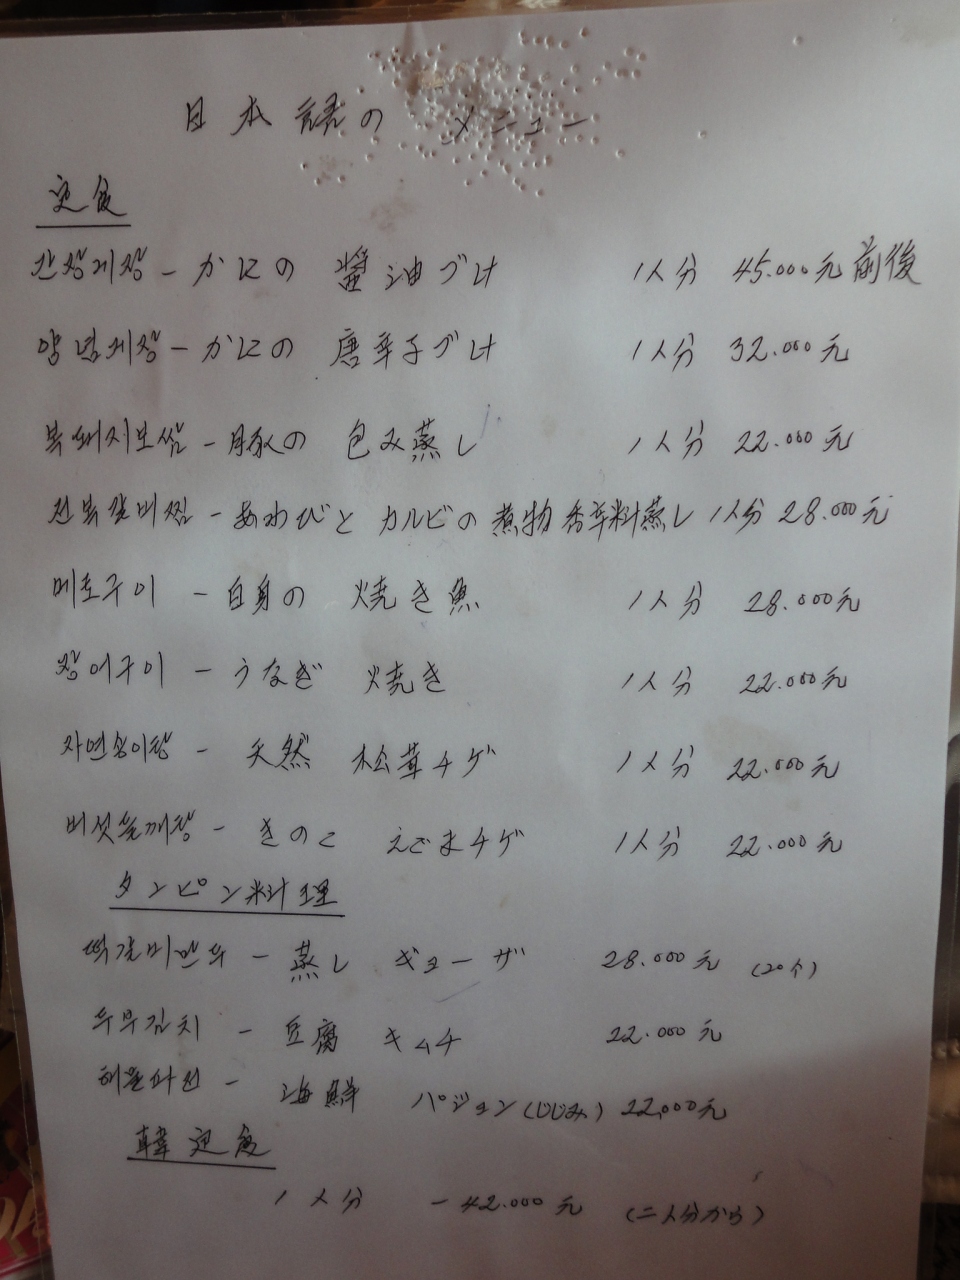 日本語の メニュー
定食
간장게장 - かにの 醤油づけ 1人分 45.000元前後
양념게장 - かにの 唐辛子づけ 1人分 32.000元
복돼지보쌈 - 豚の 包み蒸し 1人分 22.000元
전복갈비찜 - あわびと カルビの 煮物香辛料蒸し 1人分 28.000元
메로구이 - 白身の 焼き魚 1人分 28.000元
장어구이 - うなぎ 焼き 1人分 22.000元
자연송이탕 - 天然 松茸チゲ 1人分 22.000元
버섯들깨탕 - きのこ えごまチゲ 1人分 22.000元
タンピン料理
떡갈비만두 - 蒸し ギョーザ 28.000元 (20个)
두부김치 - 豆腐 キムチ 22.000元
해물파전 - 海鮮 パジョン(じじみ) 22,000元
韓定食
1人分 - 42.000元 (二人分から)